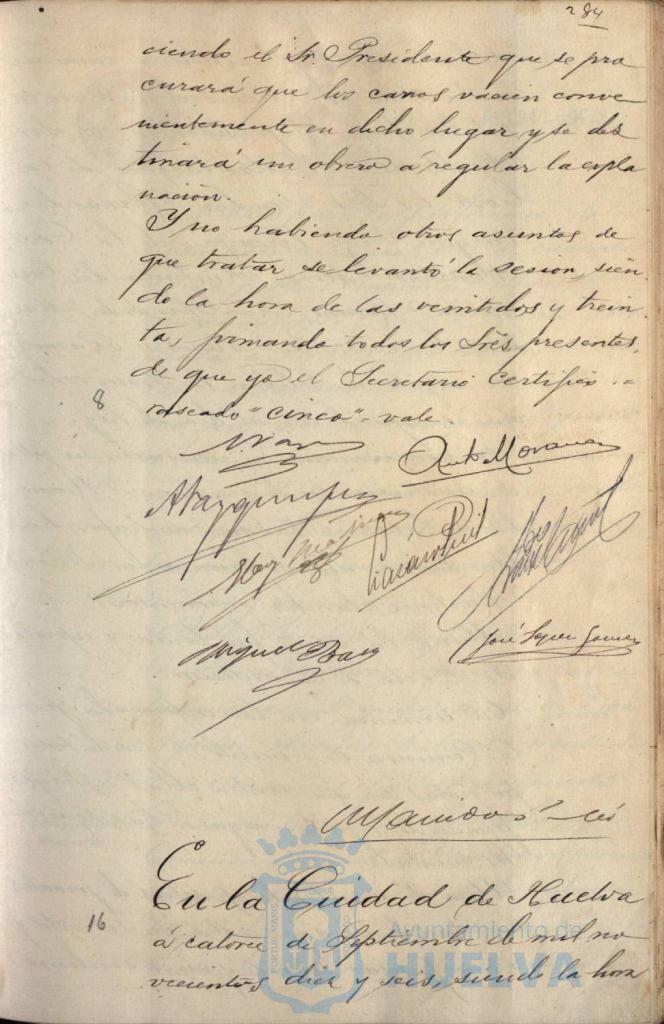 284
ciendo el Sr. Presidente que se pro
curará que los carros vacien conve
nientemente en dicho lugar y se des
tinará un obrero á regular la expla
nación.
Y no habiendo otros asuntos de
que tratar se levantó la sesion, sien
do la hora de las veintidos y trein
ta, firmando todos los Sres. presentes,
de que yo el Secretario certifico.
8
rascado "cinco" - vale
Anto Moreno
Miguel Baez
En la Ciudad de Huelva
16
á catorce de Septiembre de mil no
vecientos diez y seis, siendo la hora
PORTUS MARIS
Ayuntamiento de
HUELVA